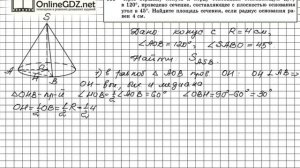 OnlineGDZ.net
в 120°, проведено сечение, составляющее с плоскостью основания
угол в 45°. Найдите площадь сечения, если радиус основания ра-
вен 4 см.
Дано: конус с R = 4 см,
∠AOB = 120°, ∠SABO = 45°
Найти S ASB.
1) в равноб △ AOB пров OH:
OH - выс, бис и медиана
△OHB - пр-й ∠HOB = 1/2 ∠AOB = 60° ∠OBH = 90° - 60° = 30°
OH = 1/2 OB = 1/2 R = 1/2 · 4
S
A
B
O
H